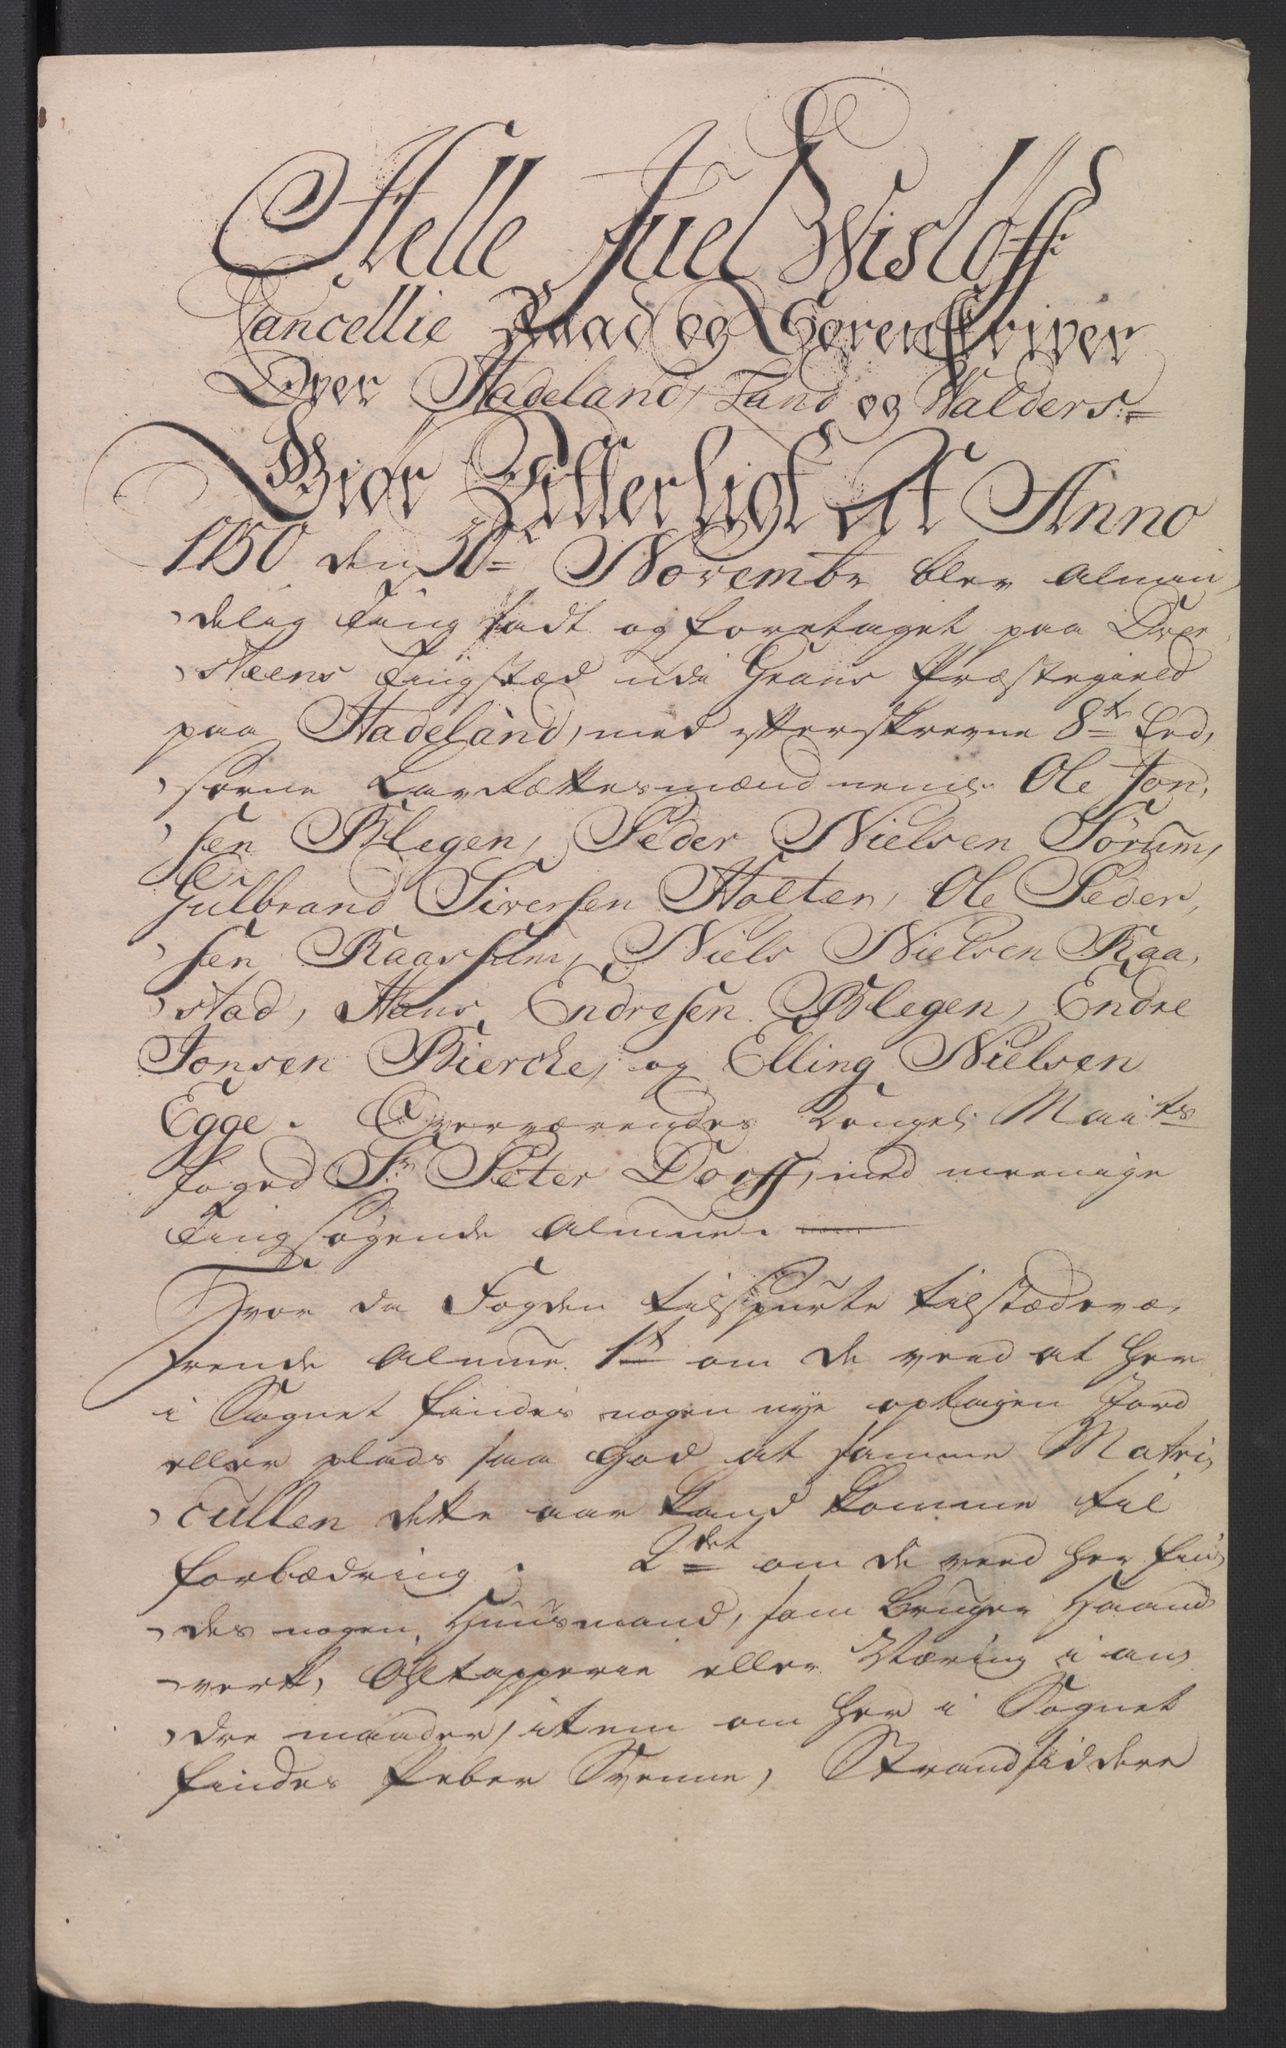 Helle Juel Wisløff
Cancellie Raad og Sorenskriver
Over Hadeland, Land og Walders
Giør Vitterligt At Anno
1750 den 30te Novembr blev almin¬
delig Ting sadt og foretaget paa Dver¬
steens Tingsted udi Grans Præstegield
paa Hadeland, med efterskrevne 8te Eed¬
sorne Lavrættesmænd nemlig Ole Jon¬
sen Blegen, Peder Nielsen Sørum,
Gulbrand Siversen Holten, Ole Peder¬
sen Raassum, Niels Nielsen Raa¬
stad, Hans Endresen Blegen, Endre
Jonsen Bierche, og Elling Nielsen
Egge. Overværendes Kongel: Maits
foged Sr. Peter Dorff, med meenige
Tingsøgende Almue.
Hvor da Fogden tilspurte tilstædevæ¬
rende Almue 1st om de veed at her
i Sognet findes nogen nye optagen Jord
eller plads saa god at samme Matri¬
cullen dette aar kand komme til
forbædring. 2det om de veed her fin¬
des nogen Huusmand, som bruger Haand¬
verk, Øltapperie eller Næring i an¬
dre maader, item om her i Sognet
findes Peber Svenne, Strandsiddere